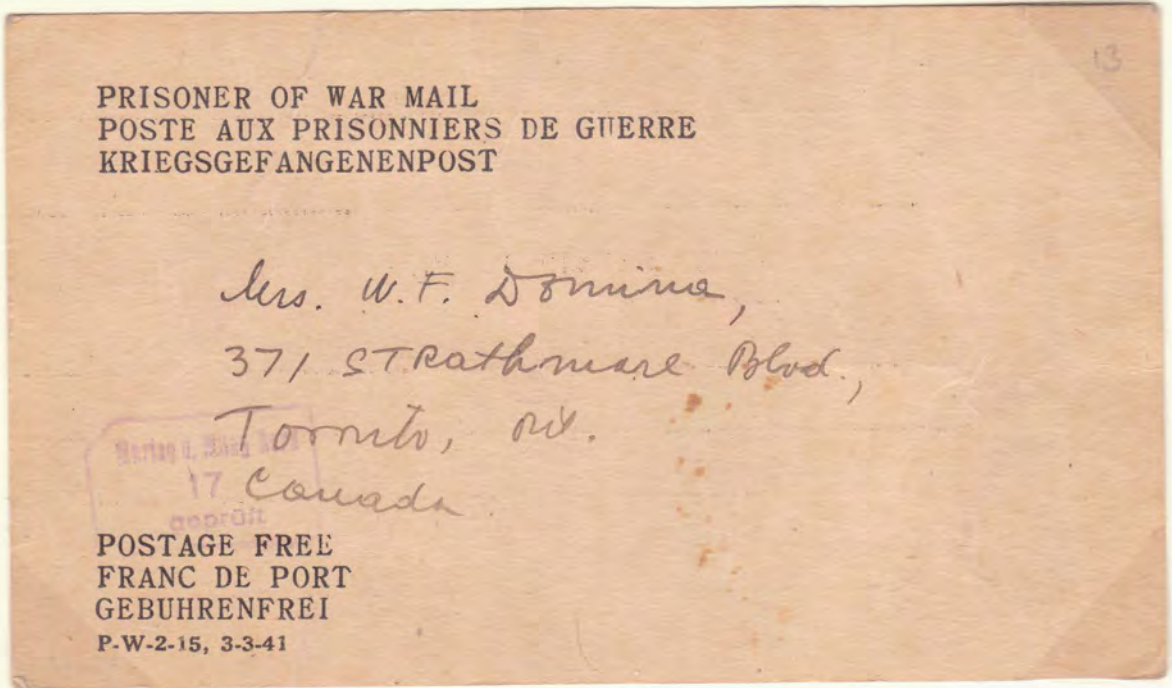 13
PRISONER OF WAR MAIL
POSTE AUX PRISONNIERS DE GUERRE
KRIEGSGEFANGENENPOST
Mrs. W.F. Domina,
371 STRathmore Blvd.,
Toronto, Ont.
17
Canada
geprüft
POSTAGE FREE
FRANC DE PORT
GEBUHRENFREI
P-W-2-15, 3-3-41